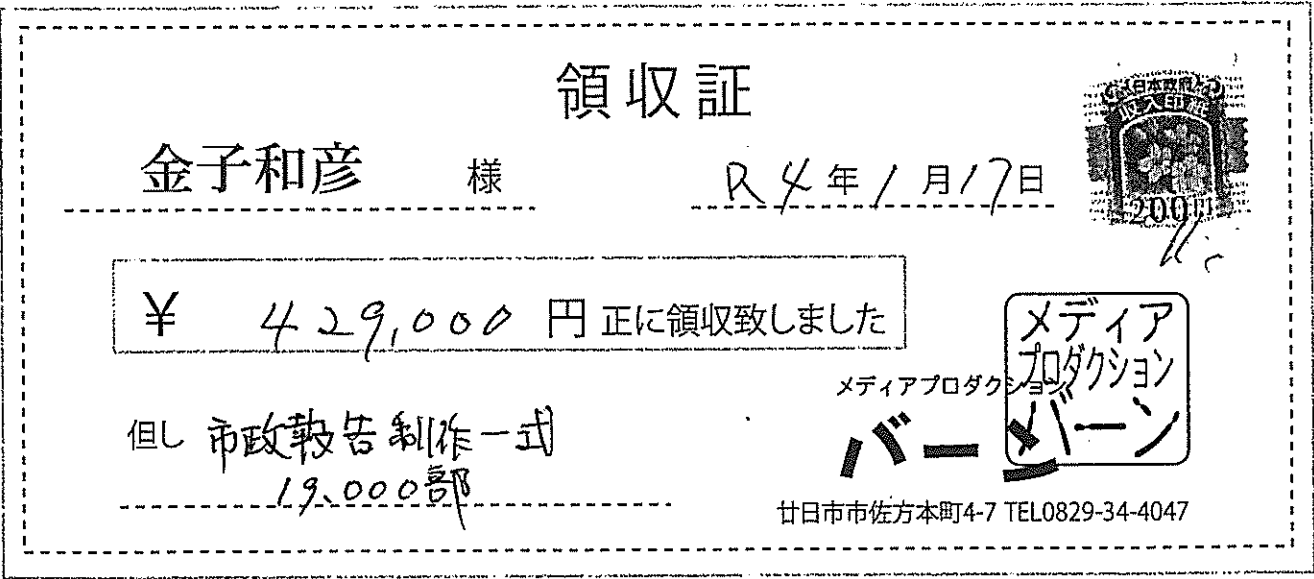 領収証
金子和彦 様
R4年1月17日
日本政府
収入印紙
200円
¥ 429,000 円 正に領収致しました
但し 市政報告制作一式
19,000部
メディアプロダクション
バーン
メディア
プロダクション
バーン
廿日市市佐方本町4-7 TEL0829-34-4047